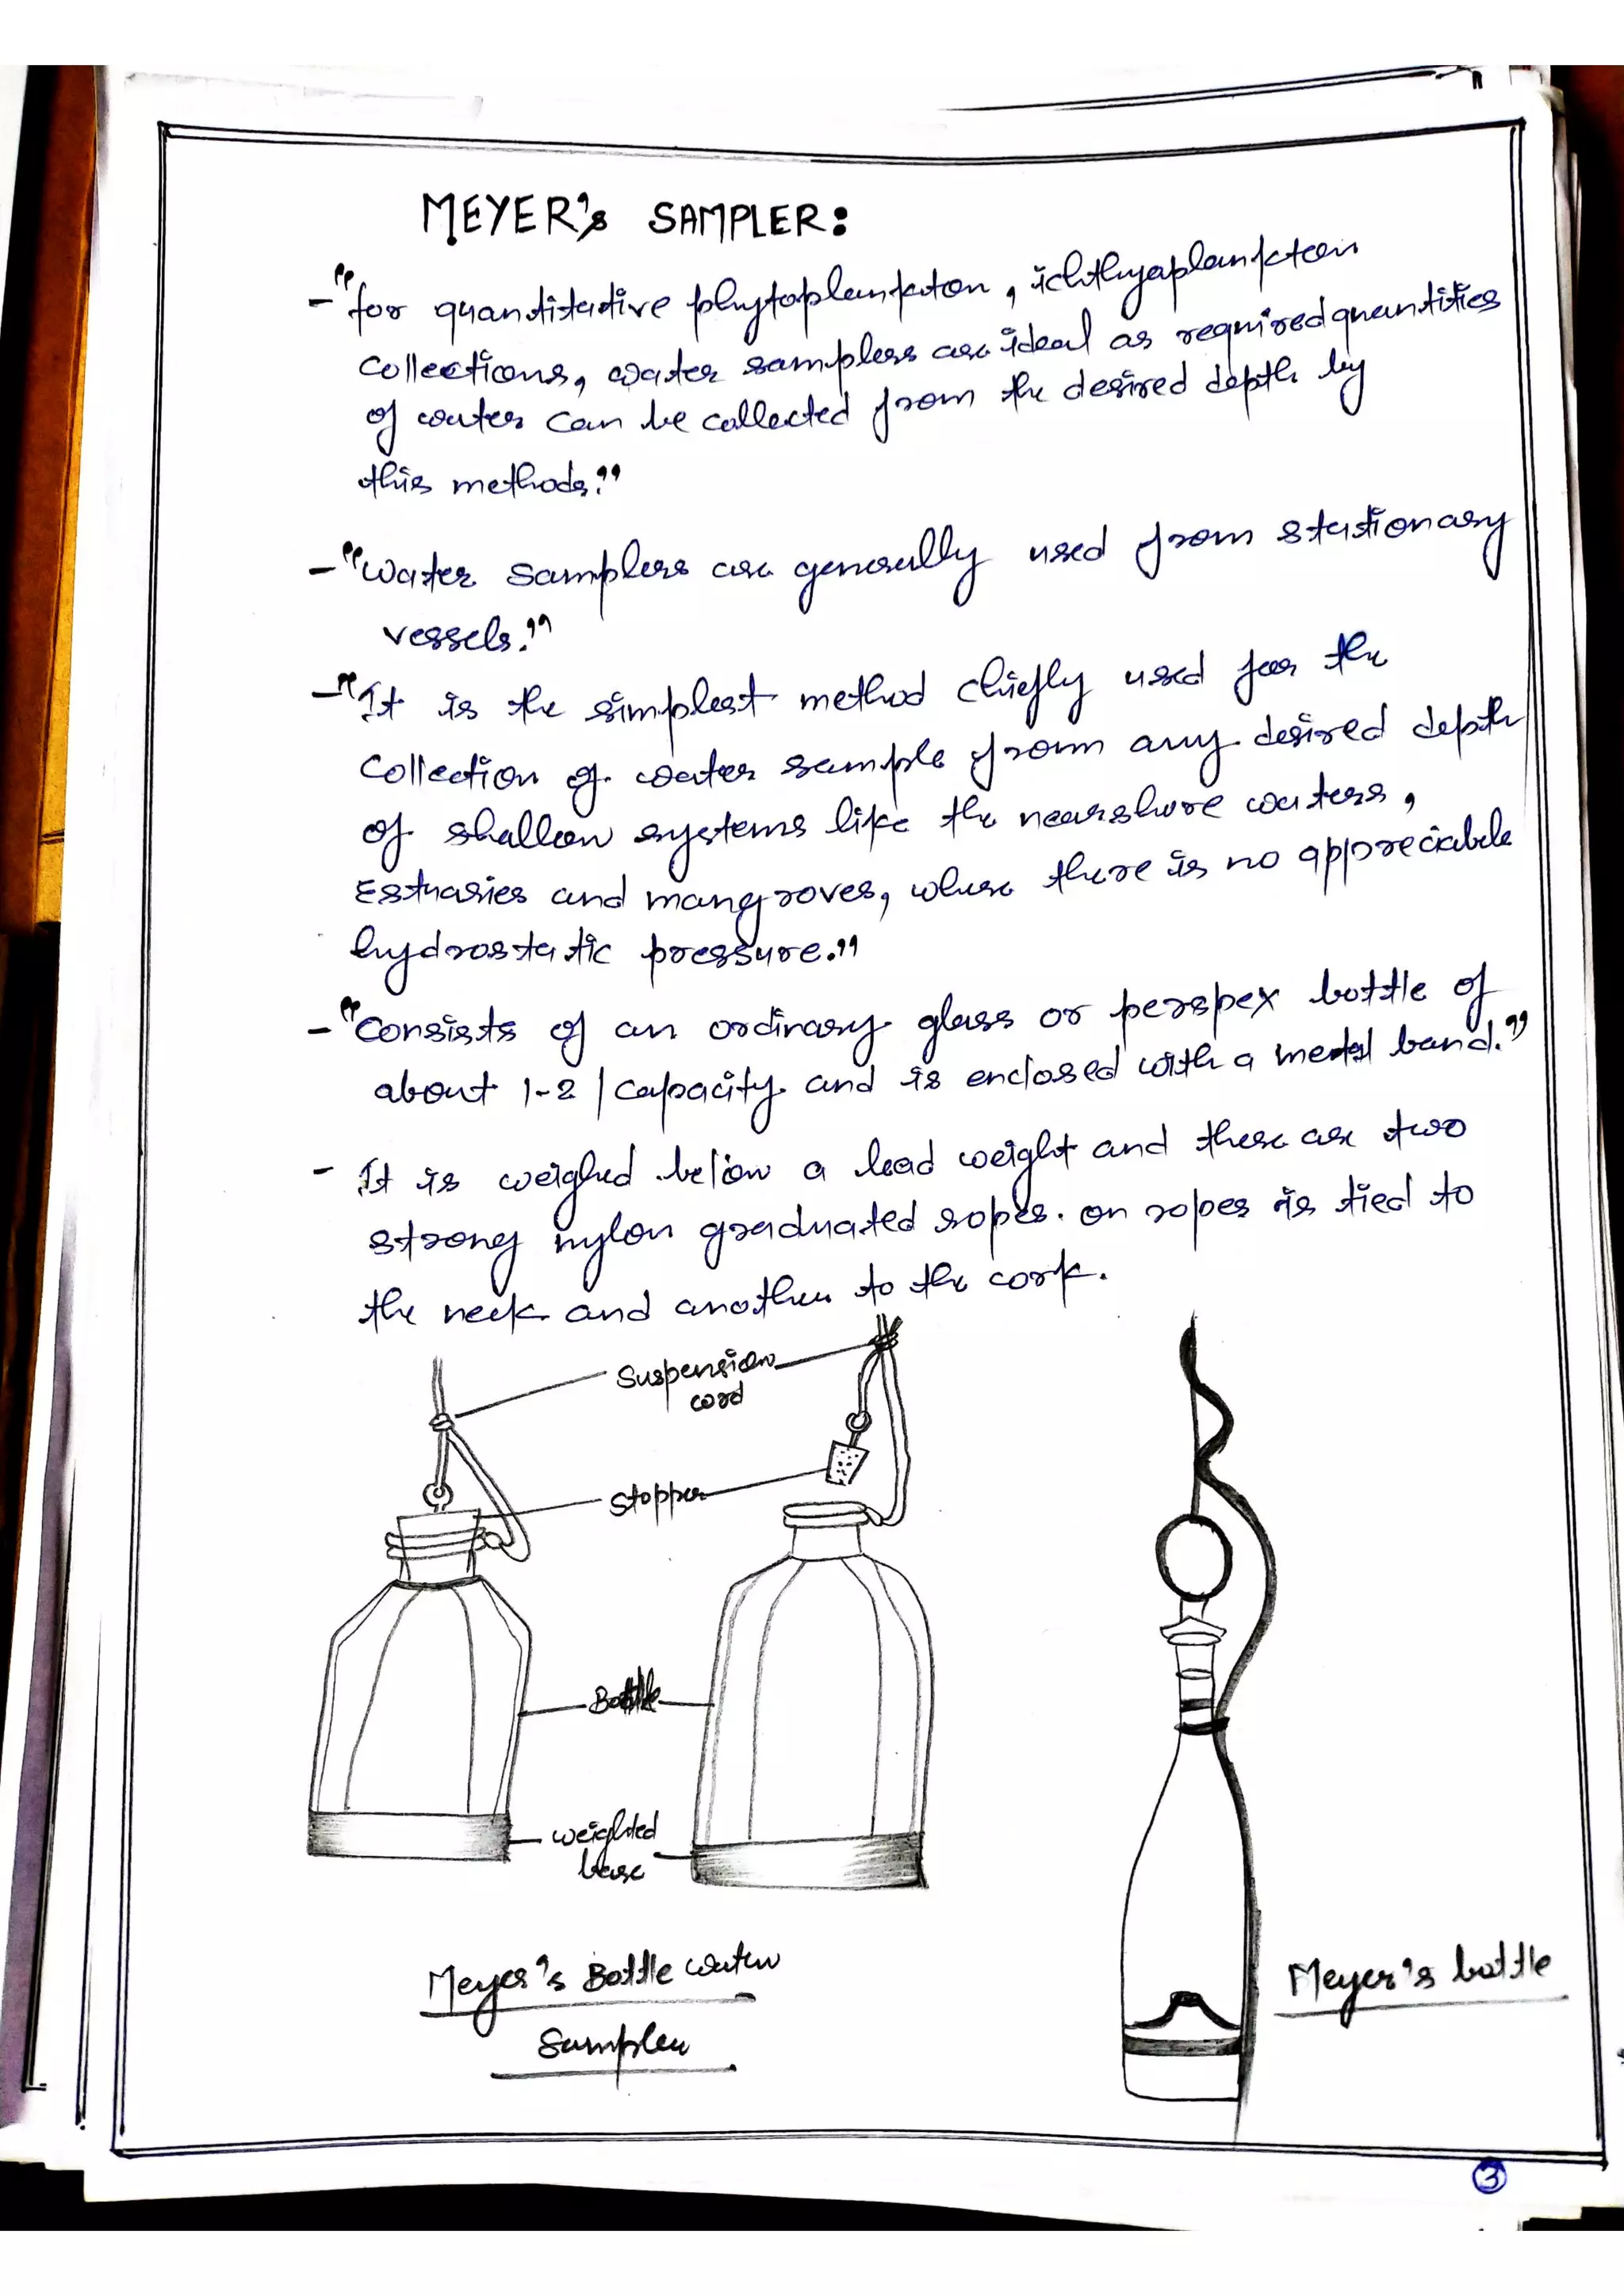 MEYER's SAMPLER:
- "for quantitative phytoplankton, ichthyoplankton
collections, water samplers are ideal as required quantities
of water can be collected from the desired depth by
this methods."
- "Water samplers are generally used from stationary
vessels."
- "It is the simplest method chiefly used for the
collection of water sample from any desired depth
of shallow systems like the nearshore waters,
Estuaries and mangroves, where there is no appreciable
hydrostatic pressure."
- "Consists of an ordinary glass or perspex bottle of
about 1-2 l capacity and is enclosed with a metal band."
- It is weighed below a lead weight and there are two
strong nylon graduated ropes. on ropes is tied to
the neck and another to the cork.
Suspension
cord
Stopper
Bottle
weighted
base
Meyer's Bottle water
Sampler
Meyer's bottle
3